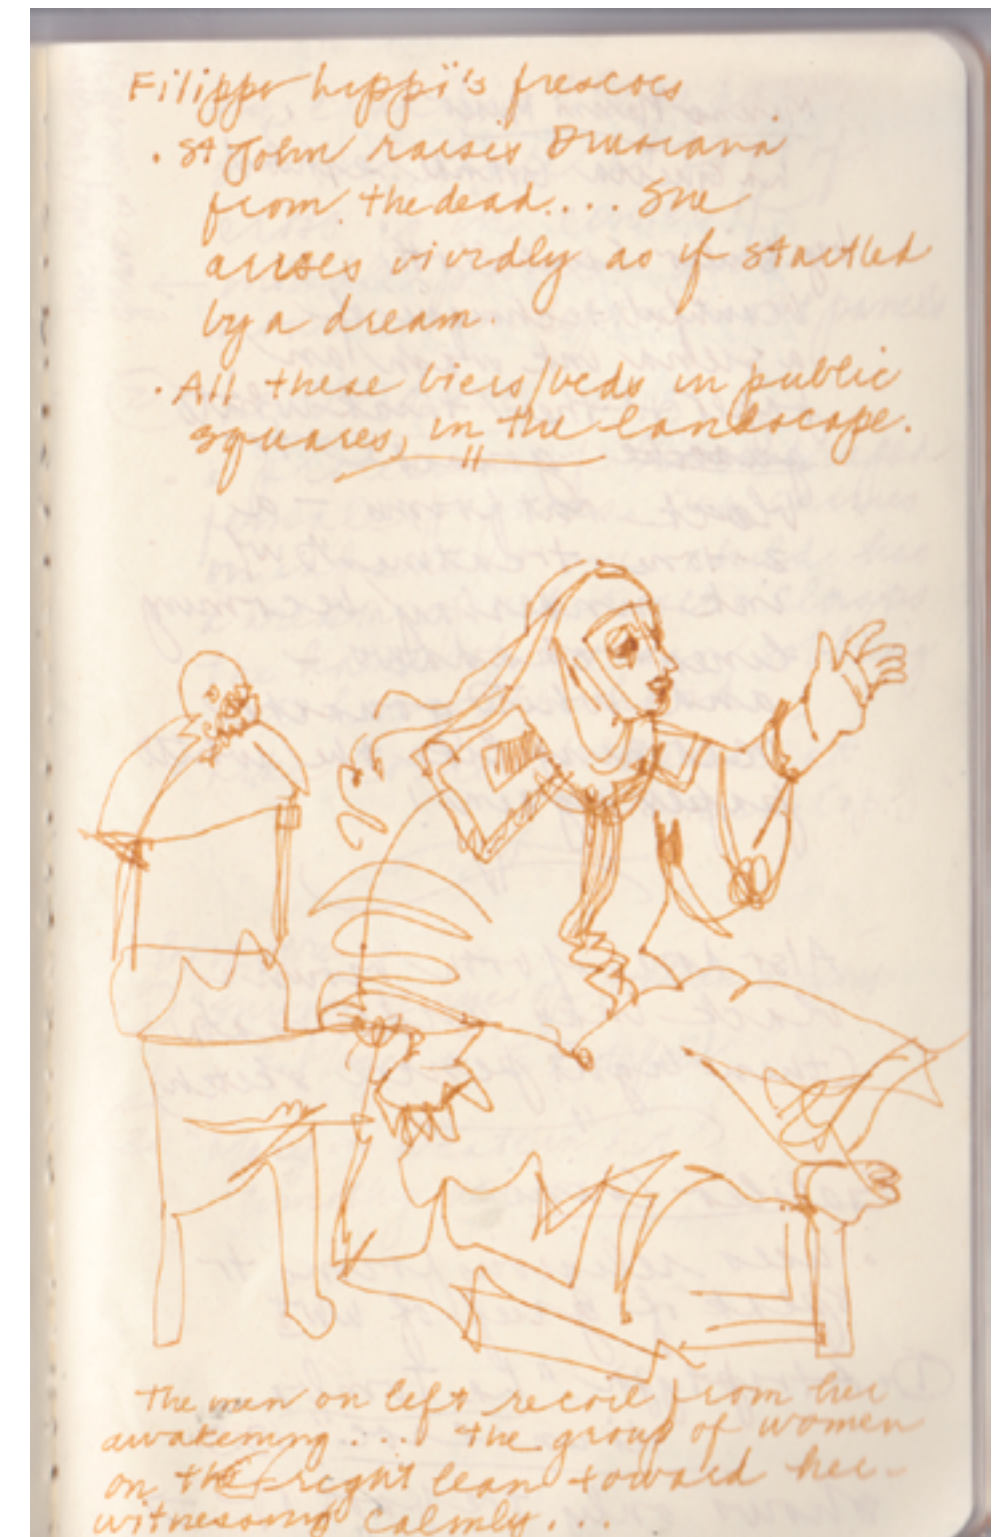 Filippo Lippi's frescoes
• St John raises Drusiana
from the dead.... She
arises vividly as if startled
by a dream
• All these biers/beds in public
squares, in the landscape.
The men on left recoil from her
awakening.... the group of women
on the right lean toward her -
witnessing calmly...